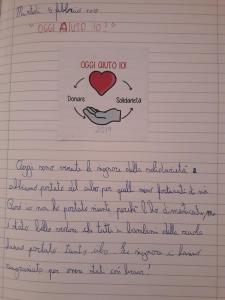 Martedì 11 febbraio 2020
"OGGI AIUTO IO!"
OGGI AIUTO IO!
Donare
Solidarietà
2019
Oggi sono venute le signore della solidarietà e
abbiamo portato del cibo per quelli meno fortunati di noi.
io non ho portato niente perché l'ho dimenticato, ma
è stato bello vedere che tutti i bambini della scuola
hanno portato tanto cibo. Le signore ci hanno
ringraziato per essere stati così bravi!